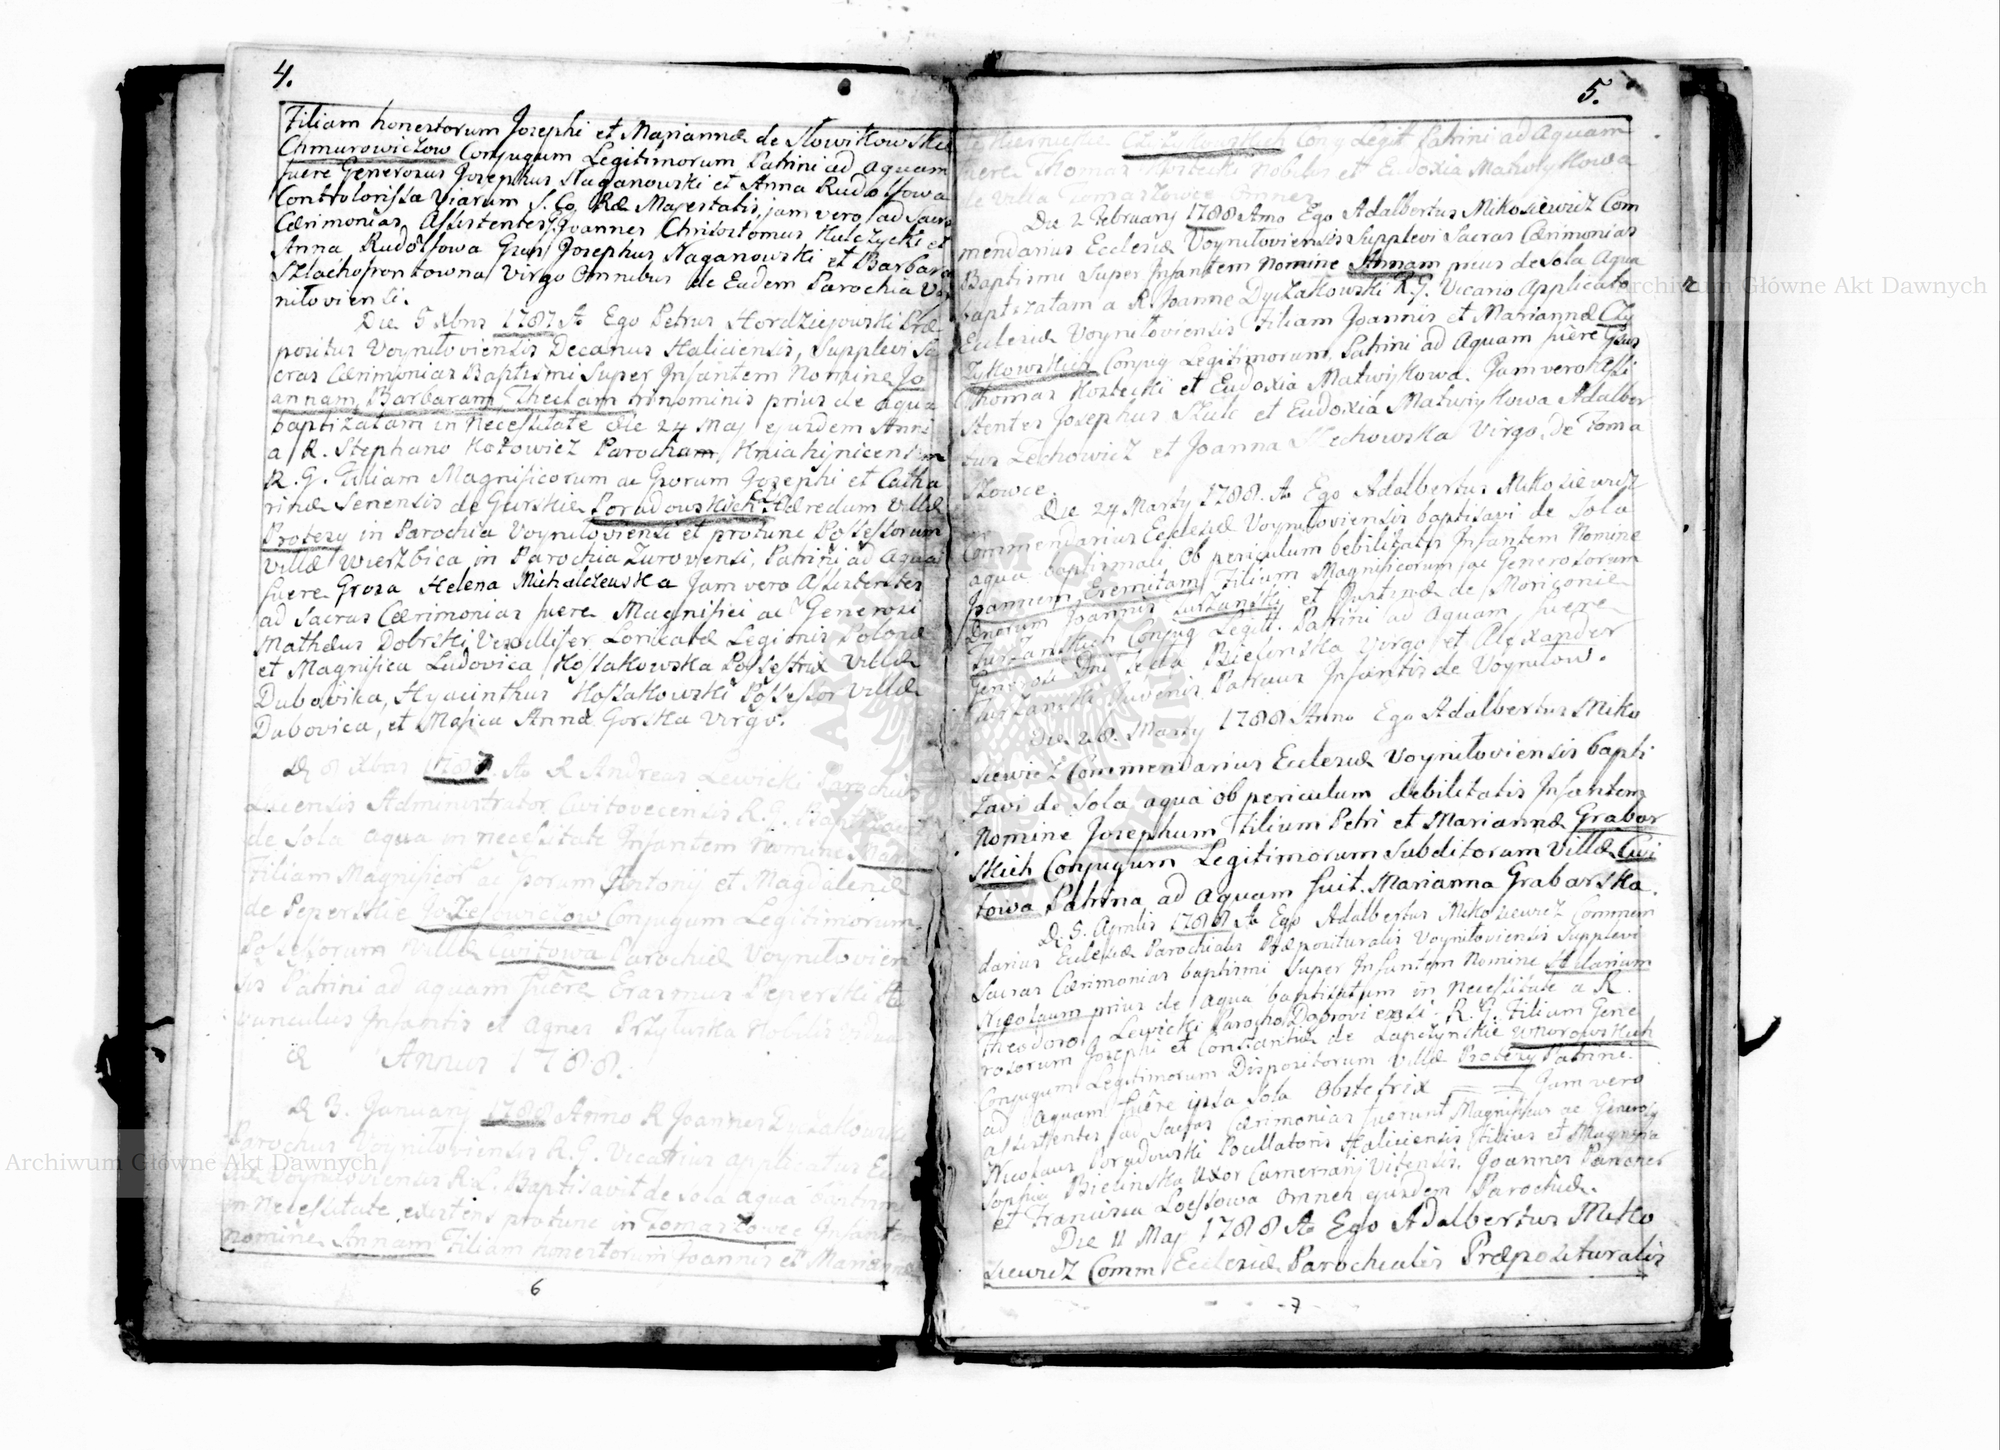 4.
Filiam honestorum Josephi et Mariannæ de Slowikowskie
Chmurowiczow Conjugum Legitimorum Patrini ad aquam
fuere Generosus Josephus Naganowski et Anna Rudolfowa
Controlorissa Viarum S. C. Ræ Majestatis, jam vero ad Sacras
Cærimonias, Assistentes Joannes Chrisostomus Kulczycki et
Anna Rudolfowa Josephus Naganowski et Barbara
Virgo Omnibus de Eadem Parochia Voy
niloviensi.
Die 5 Xbris 1787 Ao Ego Petrus Hordziejowski Præ
positus Voyniloviensis Decanus Haliciensis, Supplevi Sa
cras Cærimonias Baptismi Super Infantem Nomine Jo
annam, Barbaram Theclam trinominis prius de aqua
baptizatam in Necessitate die 24 Maj ejusdem Anni
a R. Stephano Kotowicz Parocho Kniahynicensi
R. G. Filiam Magnificorum ac Grorum Josephi et Catha
rinæ Senensis de Gurskie Poradowskich Hæredum Villæ
Protezy in Parochia Voyniloviensi et protunc Possessorum
Villæ Wierzbica in Parochia Zuroviensi, Patrini ad Aquam
fuere Grosa Helena Michalczewska Jam vero Assistentes
ad Sacras Cærimonias fuere Magnifici ac Generosi
Mathæus Dobrski Vexillifer Loricatæ Legionis Polonæ
et Magnifica Ludovica Kossakowska Possestrix Villæ
Dubowika, Hyacinthus Kossakowski Possessor Villæ
Dubovica, et Mafica Anna Gorska Virgo.
D 8 Xbris 1787. Ao R Andreas Lewicki Parochus
Administrator Cwitovecensis R. G. Baptizavit
de Sola aqua in Necessitate Infantem Nomine
Filiam Magnificor ac Grorum Antonij et Magdalenæ
de Peperskie Jozefowiczow Conjugum Legitimorum
Possessorum Villæ Cwitowa Parochiæ Voynilovien
sis Patrini ad aquam fuere Erasmus Peperski A
vunculus Infantis et Agnes Przyluska Nobilis
Annus 1788.
D 3. January 1788 Anno R Joannes Dyczakowski
Parochus Voyniloviensis R. G. Vicarius applicatus Ec
clæ Voyniloviensis R. L. Baptisavit de Sola aqua
in Necessitate existens protunc in Tomaszowce Infantem
nomine Annam Filiam honestorum Joannis et Mariannæ
6
5.
Conj Legit Patrini ad Aquam
fuere Thomas Kostecki Nobilis et Eudoxia Matwiykowa
de Villa Tomaszowce Omnes
Die 2 February 1788 Ano Ego Adalbertus Mikosiewicz Com
mendarius Ecclesiæ Voyniloviensis Supplevi Sacras Cærimonias
Baptismi Super Infantem Nomine Annam prius de Sola Aqua
baptizatam a R. Joanne Dyczakowski R. G. Vicario Applicato
Ecclesiæ Voyniloviensis Filiam Joannis et Mariannæ Czy
zykowskich Conjug Legitimorum, Patrini ad Aquam fuere Grsus
Thomas Kostecki et Eudoxia Matwijkowa. Jam vero Assi
stentes Josephus Szulc et Eudoxia Matwiykowa Adalber
tus Lechowicz et Joanna Lechowska Virgo, de Toma
szowce.
Die 24 Marty 1788. Ao Ego Adalbertus Mikosiewicz
Commendarius Ecclesiæ Voyniloviensis baptisavi de Sola
aqua baptismali, Ob periculum debilitatis Infantem Nomine
Joannem Eremitam Filium Magnificorum ac Generosorum
Dnorum Joannis Turzanski et Justinæ de Morizonie
Turzanskich Conjug Legitt. Patrini ad Aquam fuere
Bielinska Virgo et Alexander
Turzanski Juvenis Patruus Infantis de Voynilow.
Die 28. Marty 1788 Anno Ego Adalbertus Miko
siewicz Commendarius Ecclesiæ Voyniloviensis bapti
zavi de Sola aqua ob periculum debilitatis Infantem
Nomine Josephum Filium Petri et Mariannæ Grabar
skich Conjugum Legitimorum Subditorum Villæ Cwi
towa Patrina ad Aquam fuit. Marianna Grabarska.
D. 5. Aprilis 1788 Ao Ego Adalbertus Mikosiewicz Commen
darius Ecclesiæ Parochialis Præposituralis Voyniloviensis Supplevi
Sacras Cærimonias baptismi Super Infantem Nomine Hilarium
Nicolaum prius de aqua baptisatum in Necessitate a R.
Theodoro Lewicki Parocho Dobroviensi. R. G. Filium Gene
rosorum Josephi et Constantiæ de Lapczynskie Umorowskich
Conjugum Legitimorum Dispositorum Villæ Protezy Patrini.
ad Aquam fuere ipsa Sola Obstetrix Jam vero
assistentes ad Sacras Cærimonias fuerunt Magnificus ac Generosus
Nicolaus Poradowski Pocillatoris Haliciensis Filius et Magnifica
Sophia Bielinska Uxor Camerarij Joannes Pancker
et Francisca Loessowa Omnes ejusdem Parochiæ.
Die 11 Maj 1788 Ao Ego Adalbertus Miko
siewicz Comm Ecclesiæ Parochialis Præposituralis
- 7 -
Archiwum Główne Akt Dawnych
Archiwum Główne Akt Dawnych